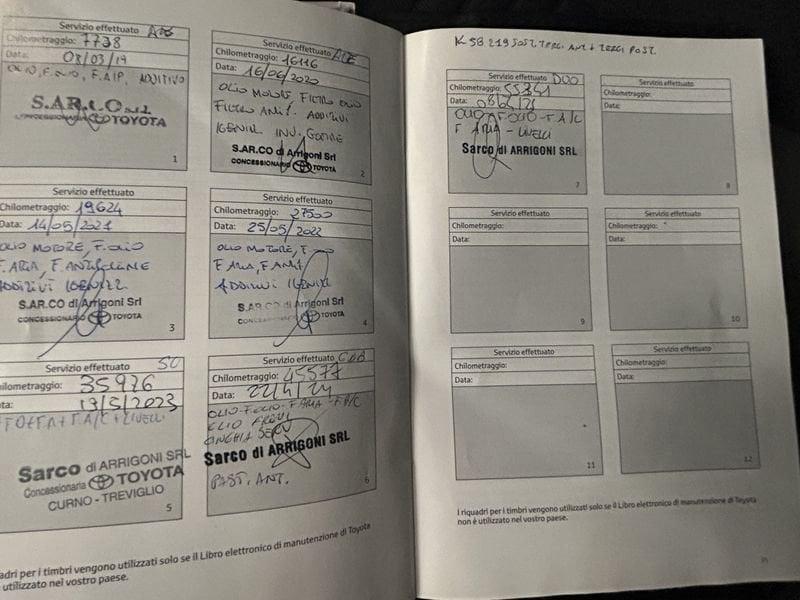 Servizio effettuato
Chilometraggio: 7738
Data: 08/03/19
OLIO, F.OLIO, F.AIP, ADDITIVO
S.AR.CO Srl
CONCESSIONARIA TOYOTA
1
Servizio effettuato
Chilometraggio: 16116
Data: 16/06/2020
OLIO MOTORE FILTRO OLIO
FILTRO ANT. ADDITIVI
IGENIZ. INV. GOMME
S.AR.CO di Arrigoni Srl
CONCESSIONARIA TOYOTA
2
Servizio effettuato
Chilometraggio: 19624
Data: 14/05/2021
OLIO MOTORE, F.OLIO
F.ARIA, F.ANTIPOLLINE
ADDITIVI IGENIZZ
S.AR.CO di Arrigoni Srl
CONCESSIONARIA TOYOTA
3
Servizio effettuato
Chilometraggio: 27500
Data: 25/05/2022
OLIO MOTORE, F
F ARIA, F.ANT
ADDITIVI IGENIZZ
S.AR.CO di Arrigoni Srl
CONCESSIONARIA TOYOTA
4
Servizio effettuato
hilometraggio: 35976
ata: 19/5/2023
+ F.A/C + LIVELLI
Sarco di ARRIGONI SRL
Concessionaria TOYOTA
CURNO - TREVIGLIO
5
Servizio effettuato
Chilometraggio: 45577
Data: 22/4/24
OLIO-F.OLIO-F.ARIA-F.A/C
OLIO FRENI
CINGHIA SERV
Sarco di ARRIGONI SRL
PAST. ANT.
6
adri per i timbri vengono utilizzati solo se il Libro elettronico di manutenzione di Toyota
utilizzato nel vostro paese.
K 58 219 SOST. TERGI ANT + TERGI POST.
Servizio effettuato DUO
Chilometraggio: 55341
Data:
OLIO-F.OLIO-F A/C
F ARIA - LIVELLI
Sarco di ARRIGONI SRL
7
Servizio effettuato
Chilometraggio:
Data:
8
Servizio effettuato
Chilometraggio:
Data:
9
Servizio effettuato
Chilometraggio:
Data:
10
Servizio effettuato
Chilometraggio:
Data:
11
Servizio effettuato
Chilometraggio:
Data:
12
I riquadri per i timbri vengono utilizzati solo se il Libro elettronico di manutenzione di Toyota
non è utilizzato nel vostro paese.